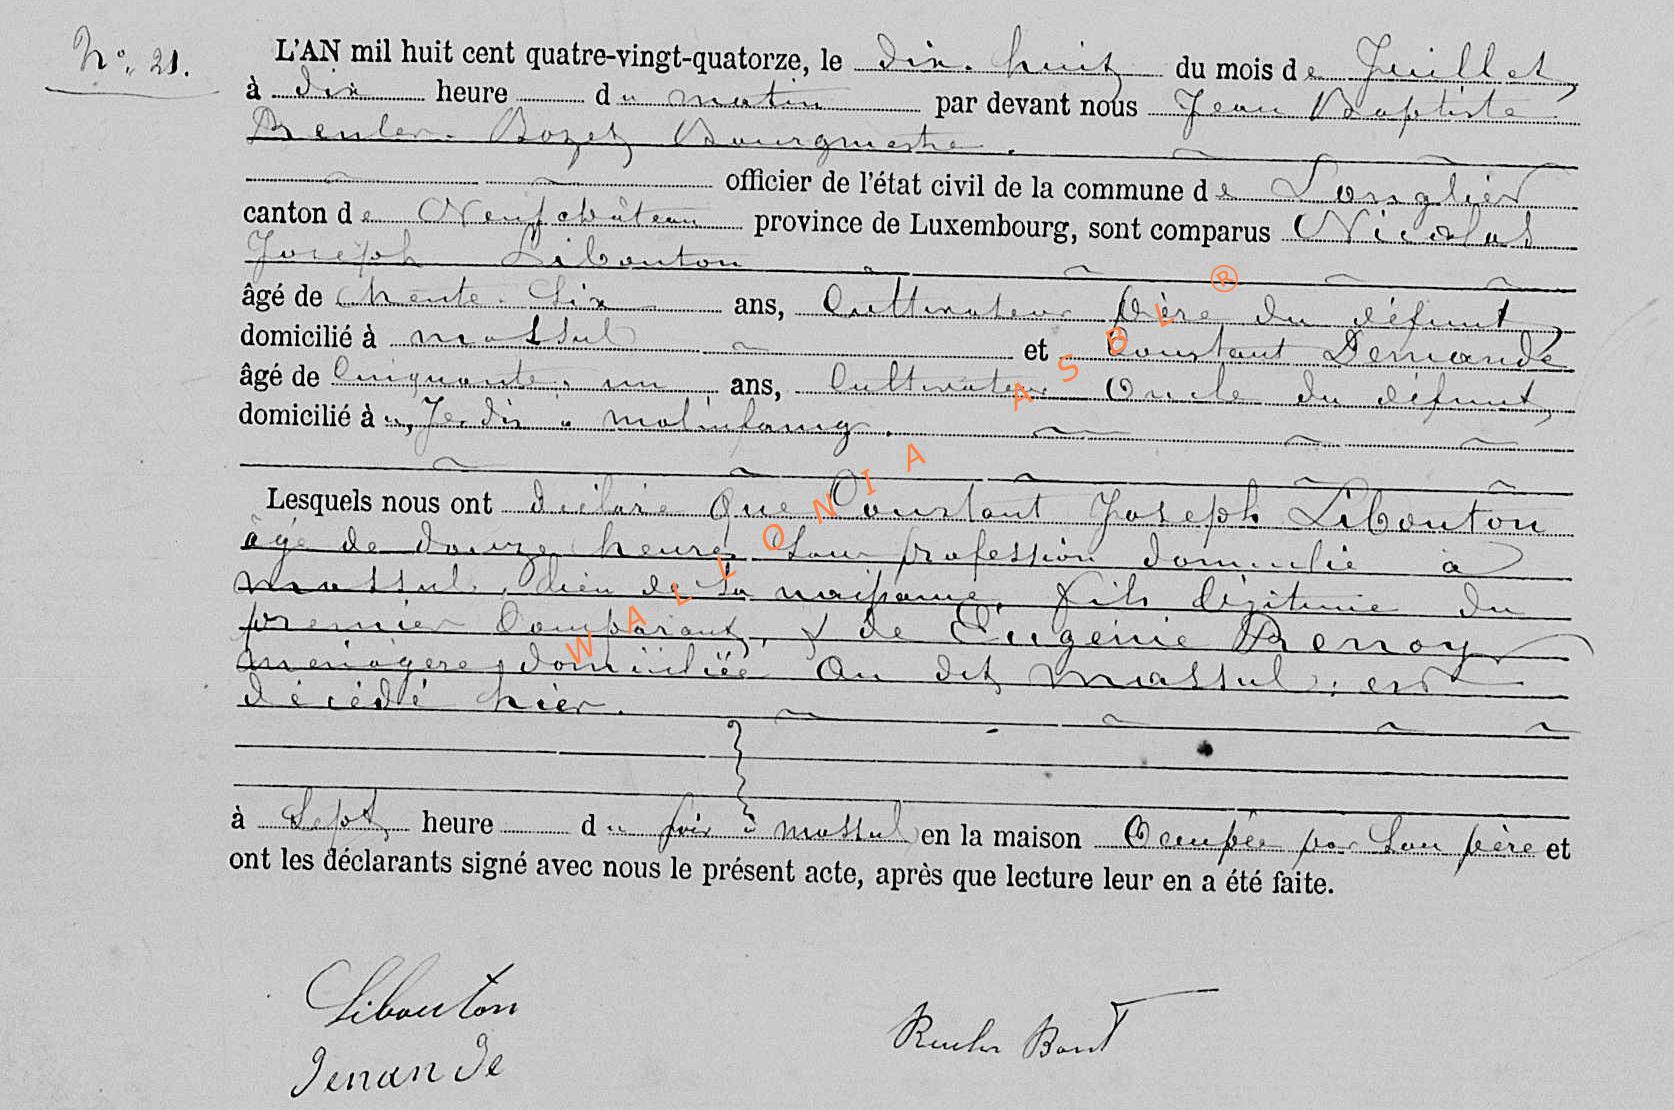 N°. 21.
L'AN mil huit cent quatre-vingt-quatorze, le dix-huit du mois de Juillet,
à dix heure du matin par devant nous Jean Baptiste
Reuler-Bozet Bourgmestre.
officier de l'état civil de la commune de Longlier
canton de Neufchâteau province de Luxembourg, sont comparus Nicolas
Joseph Libouton
âgé de trente-six ans, Cultivateur Père du défunt,
domicilié à Massul et Constant Demande
âgé de Cinquante-un ans, Cultivateur Oncle du défunt,
domicilié à Molinfaing.
Lesquels nous ont déclaré Que Constant Joseph Libouton
âgé de douze heures, Sans profession domicilié à
Massul, lieu de Sa naissance, fils légitime du
premier Comparant, & de Eugénie Renoy
ménagère, domiciliée Au dit Massul, est
décédé hier.
à Sept heure du soir à Massul en la maison Occupée par Son père et
ont les déclarants signé avec nous le présent acte, après que lecture leur en a été faite.
Libouton
Demande
WALLONIA ASBL ®